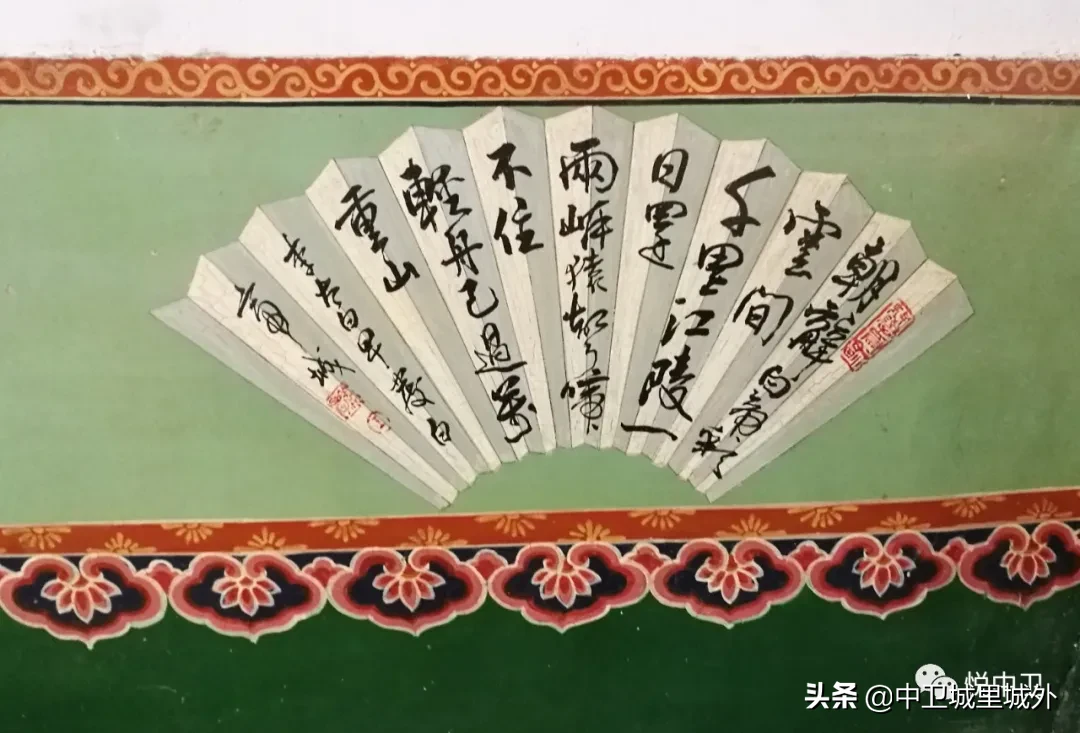 朝辭白帝彩
雲間
千里江陵一
日還
兩岸猿聲啼
不住
輕舟已過萬
重山
李太白早發白
帝城
悦中卫
头条 @中卫城里城外